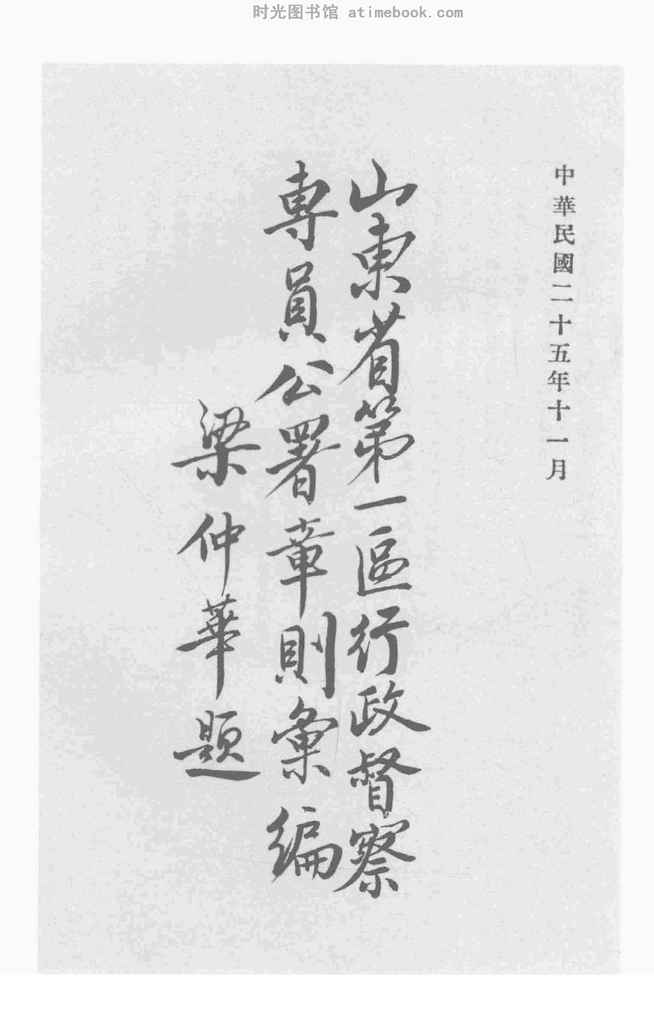 时光图书馆 atimebook.com
中華民國二十五年十一月
山東省第一區行政督察
專員公署章則彙編
梁仲華題